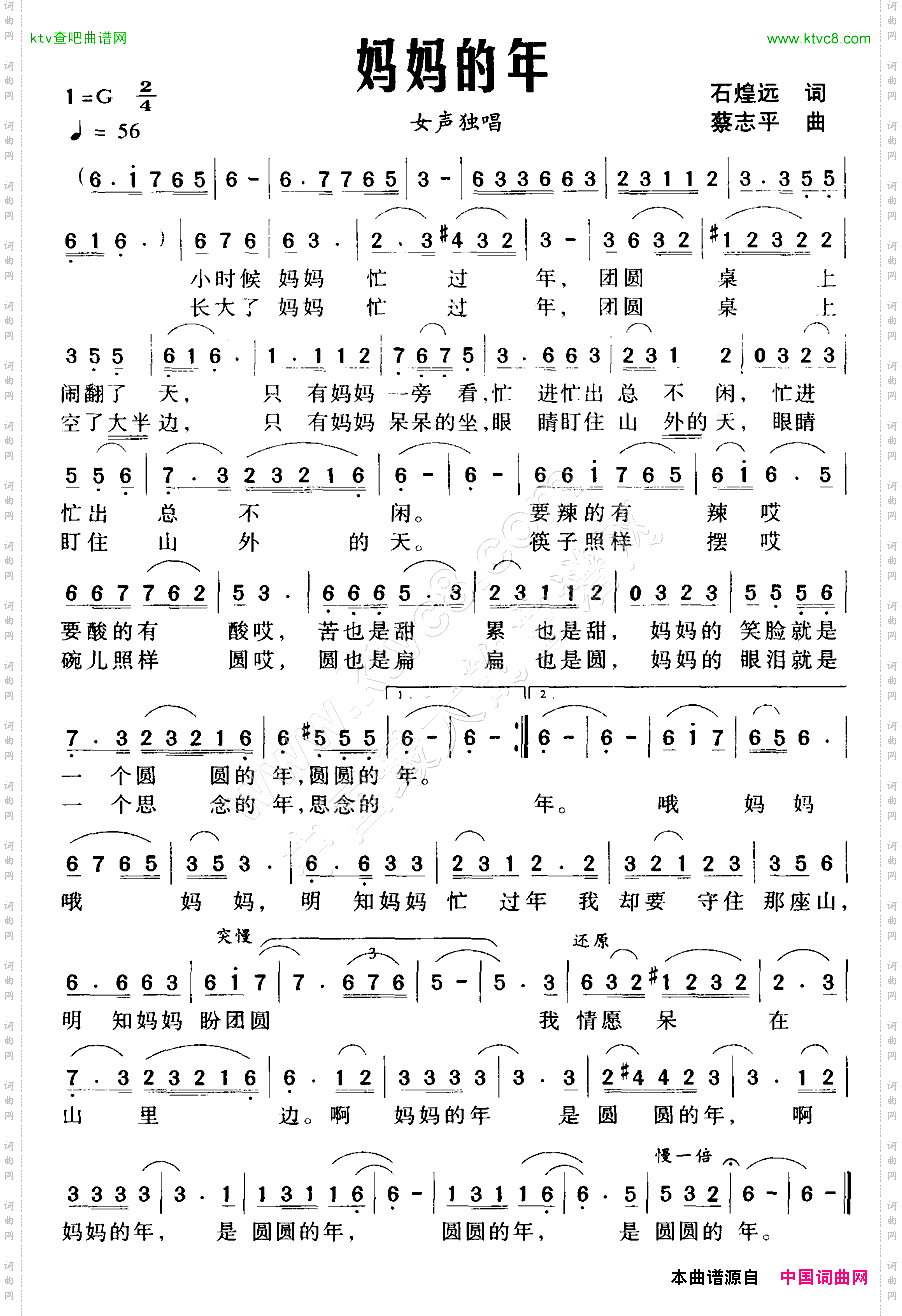 ktv查吧曲谱网
www.ktvc8.com
妈妈的年
1=G 2/4
石煌远 词
♩= 56
女声独唱
蔡志平 曲
(6.i765 | 6- | 6.7765 | 3- | 633663 | 23112 | 3.355 |
616.) | 676 63. | 2.3#432 | 3- | 3632 | #12322 |
小时候 妈妈 忙 过 年, 团圆 桌 上
长大了 妈妈 忙 过 年, 团圆 桌 上
355 | 616. | 1.112 | 7675. | 3.663 | 231 2 | 0323 |
闹翻了 天, 只 有妈妈 一旁 看,忙 进忙出 总 不 闲, 忙进
空了大半边, 只 有妈妈 呆呆的坐,眼 睛盯住 山 外的 天, 眼睛
556 | 7.323216 | 6- | 6- | 66i765 | 6i6.5 |
忙出 总 不 闲。 要辣的有 辣 哎
盯住 山 外 的 天。 筷子照样 摆 哎
667762 | 53. | 6665.3 | 23112 | 0323 | 5556 |
要酸的有 酸哎, 苦也是甜 累 也是甜, 妈妈的 笑脸就是
碗儿照样 圆哎, 圆也是扁 扁 也是圆, 妈妈的 眼泪就是
1. 2.
7.323216 | 6 #555 | 6- | 6- :| 6- | 6- | 6i7 | 656. |
一 个圆 圆的 年,圆圆的 年。
一 个思 念的 年,思念的 年。 哦 妈 妈
6765 | 353. | 6.633 | 2312.2 | 32123 | 356 |
哦 妈 妈, 明 知妈妈 忙 过年 我 却要 守住 那座山,
突慢 3 还原
6.663 | 6i7 | 7.676 | 5- | 5.3 | 632#1232 |
明 知妈妈 盼团圆 我 情愿 呆 在
7.323216 | 6.12 | 3333 | 3.3 | 2#4423 | 3.12 |
山 里 边。啊 妈妈的年 是 圆 圆的年, 啊
慢一倍
3333 | 3.1 | 13116 | 6- | 13116 | 6.5 | 5532 | 6- | 6- |
妈妈的年, 是 圆圆的年, 圆圆的年, 是 圆圆的 年。
本曲谱源自 中国词曲网